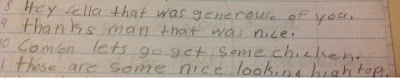 8 Hey fella that was generouse of you.
9 thanks man that was nice.
10 Comon lets go get some chicken.
those are some nice looking high top.